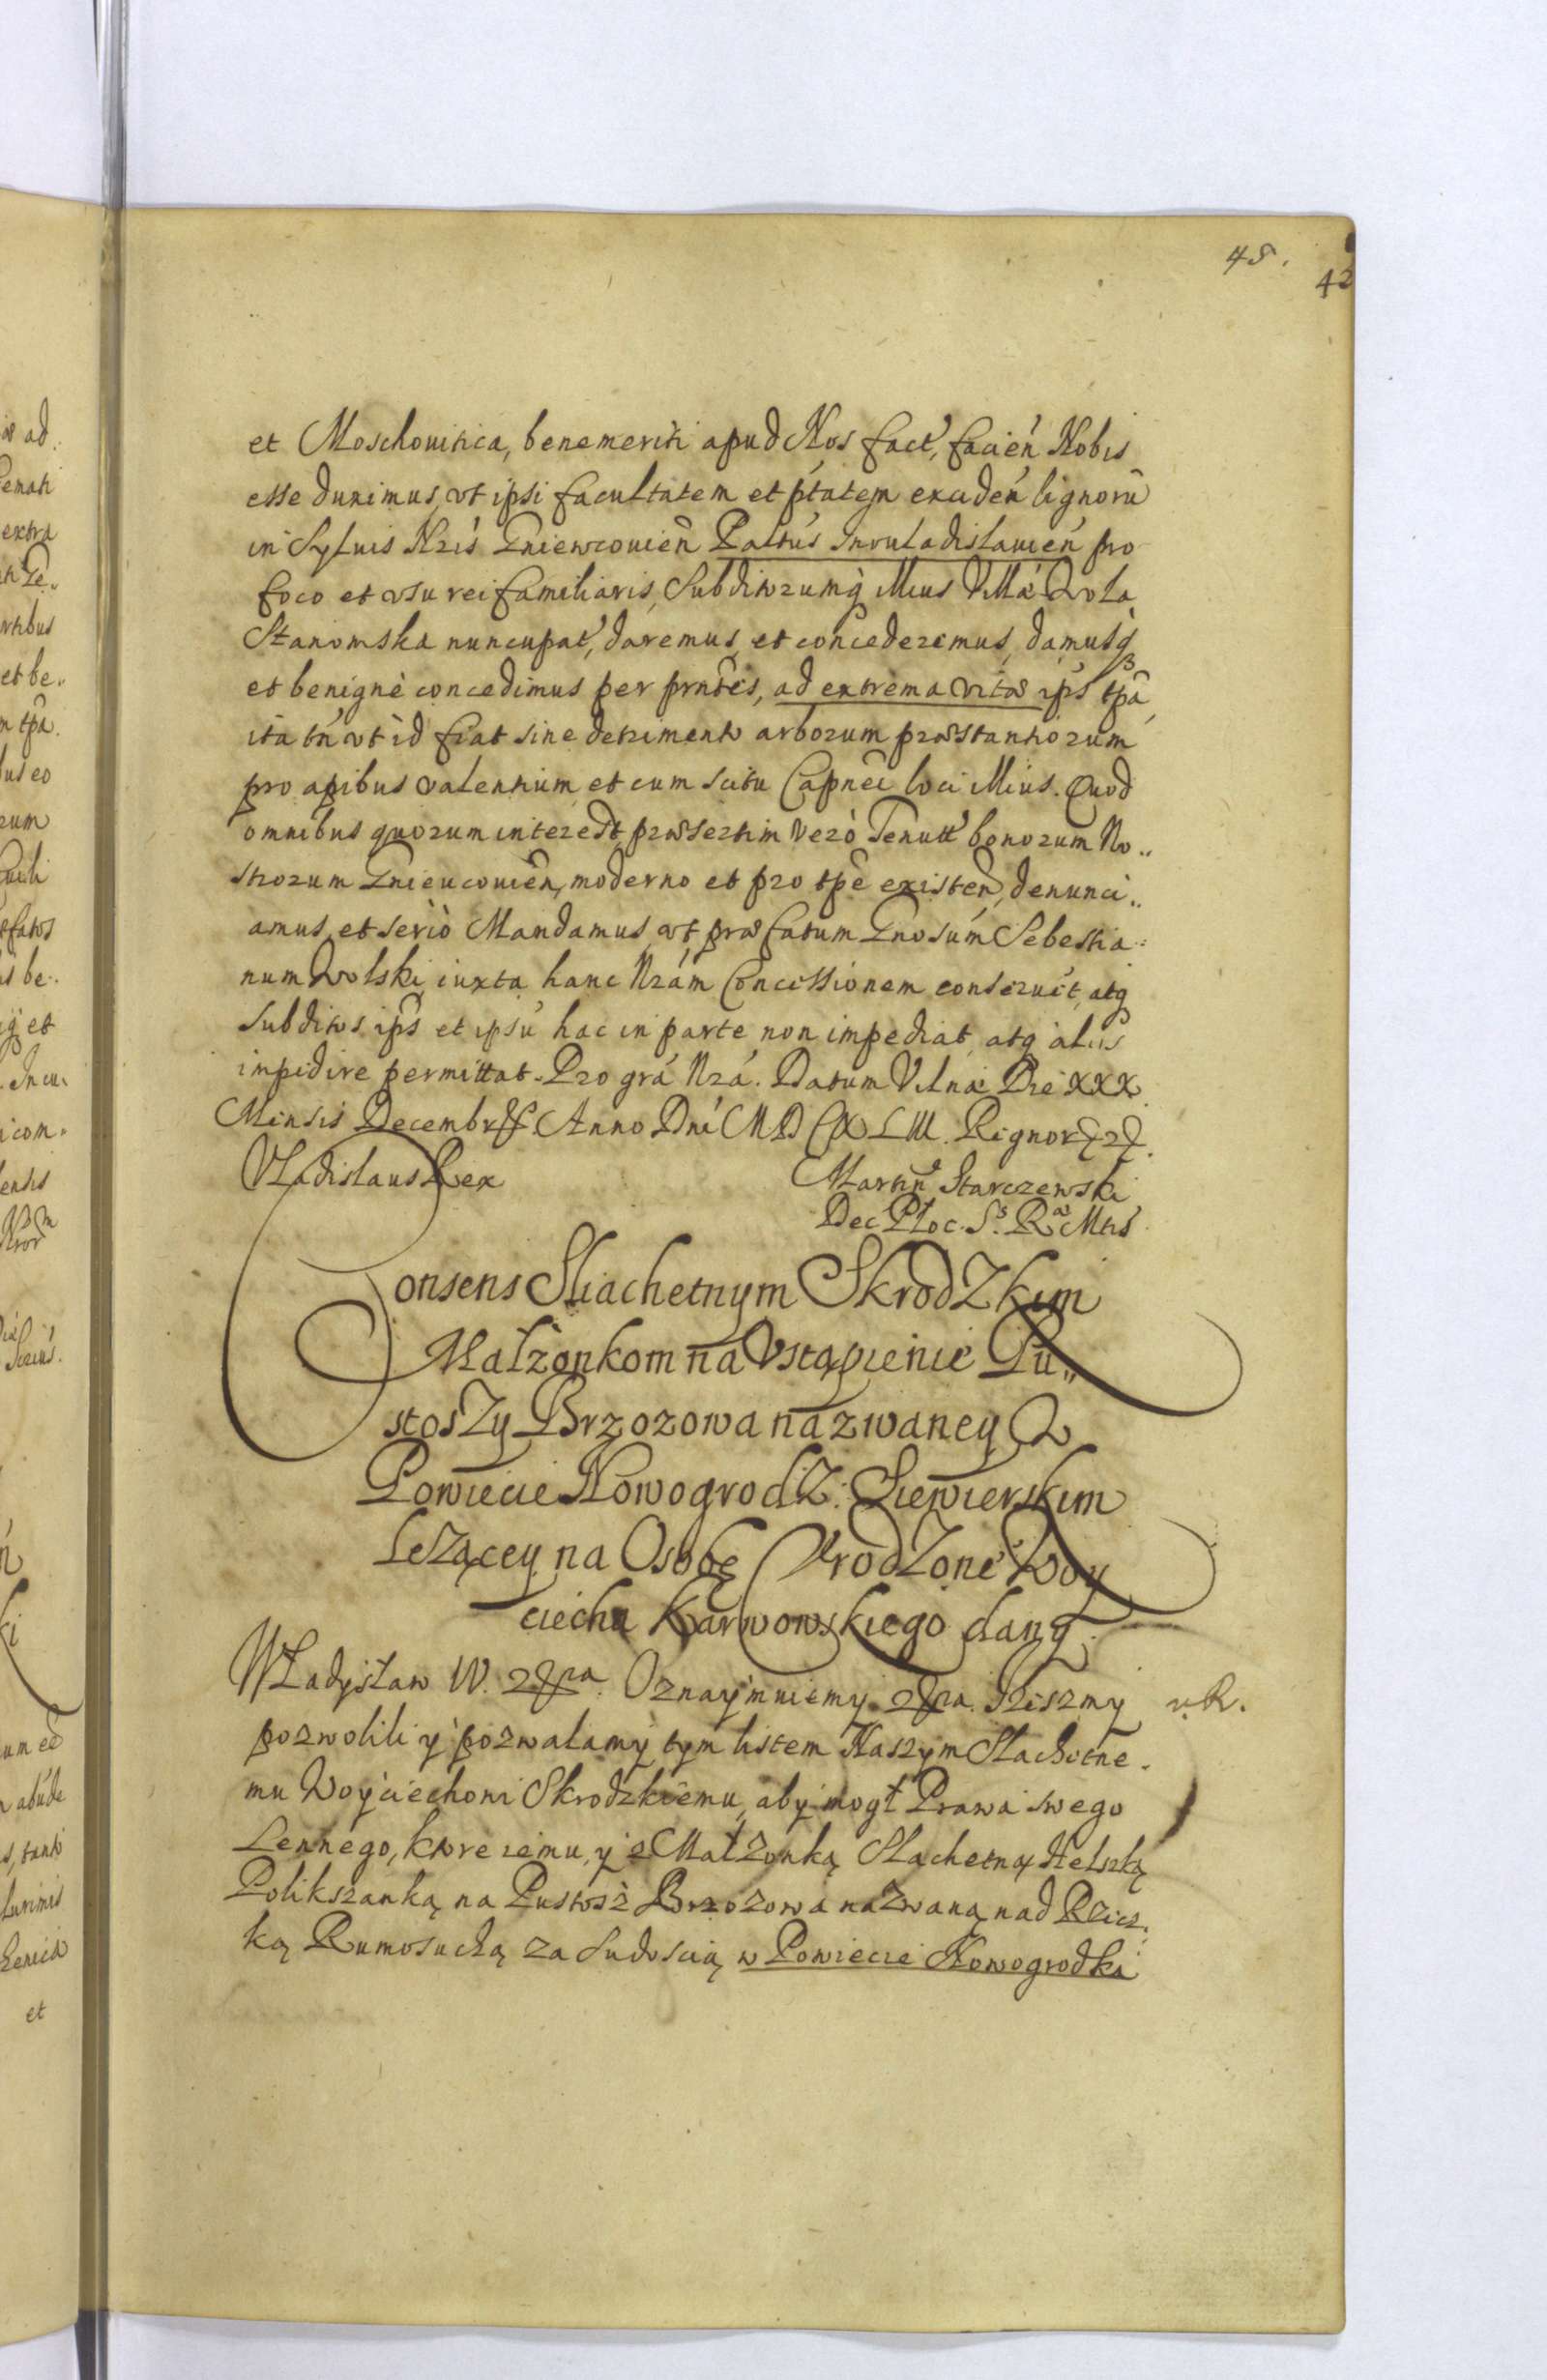 45.
42
et Moschouitica, benemeriti apud Nos fact, facień Nobis
esse duximus, vt ipsi facultatem et ptatem exciden lignorū
in Syluis Nris Gniewcouień Paltus Inouladislauień pro
foco et vsu rei familiaris, Subditorumq illius Villa Wola
Stanomska nuncupat, daremus, et concederemus, damusq
et benignè concedimus per prntes, ad extrema vitæ ips tpa
ita tn vt id fiat sine detrimento arborum præstantiorum
pro apibus valentium et cum scitu Capnei loci illius. Quod
omnibus quorum interest, præsertim verò Tenutt bonorum No„
strorum Gnieucouień, moderno et pro tpe existen, denunci„
amus, et seriò Mandamus, vt præfatum Gnosum Sebestia:
num Wolski iuxta hanc Nrám Concessionem conseruet, atq
subditos ips et ipsū hac in parte non impediat, atq aliis
impidire permittat. Pro grá Nrá. Datum Vilnæ Die XXX
Mensis Decembr. Anno Dni MDCXLIII. Rignor
Vladislaus Rex
Martin Starczewski
Dec Płoc. S. Ræ Mtis
Consens Sliachetnym SkrodZkim
Małżonkom na Vstąpienie Pu„
stosZy Brzozowa nazwaney W
Powiecie NowogrodZ: Siewierskim
LeZącey na Osobę VrodZone Woy
ciecha Karwowskiego dany.
WŁadysław IV. Oznaymuiemy. Iżeszmy
v.R.
pozwolili y pozwalamy tym listem Naszym Slachetne.
mu Woyciechowi Skrodzkiemu, aby mogł Prawa swego
Lennego, ktore iemu, y z Małzonką Slachetną Helszką
Polikszanką na Pustosz Brzozowa nazwaną nad Rzicz.
ką Rumosuchą za Sudoscią w Powiecie Nowogrodki